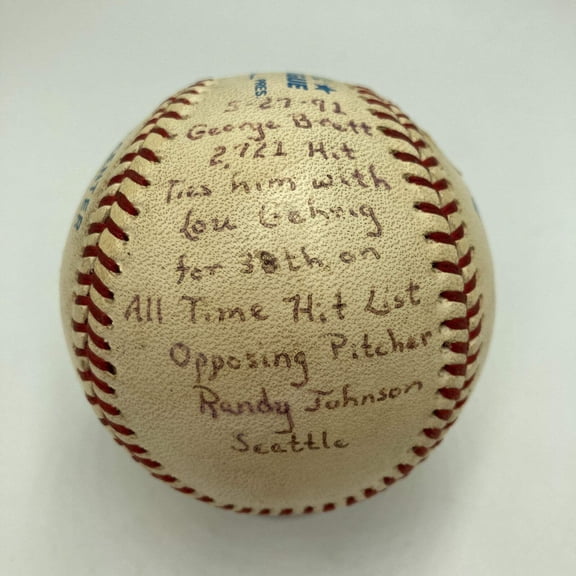 PRES.
5-27-91
George Brett
2,721 Hit
Ties him with
Lou Gehrig
for 38th on
All Time Hit List
Opposing Pitcher
Randy Johnson
Seattle